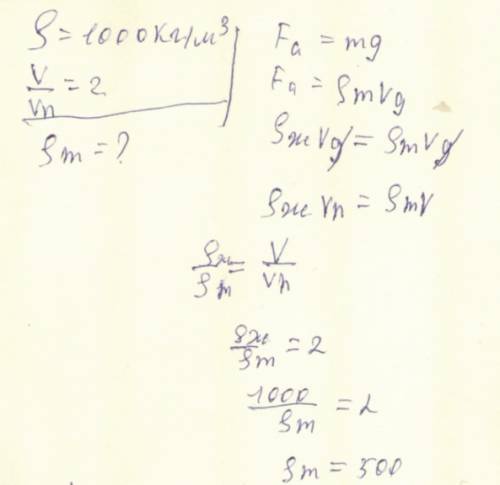 ρ = 1000 кг/м³
V/Vп = 2
ρт = ?
Fа = mg
Fа = ρтVg
ρж Vg = ρтVg
ρж Vп = ρтV
ρж/ρт = V/Vп
ρж/ρт = 2
1000/ρт = 2
ρт = 500